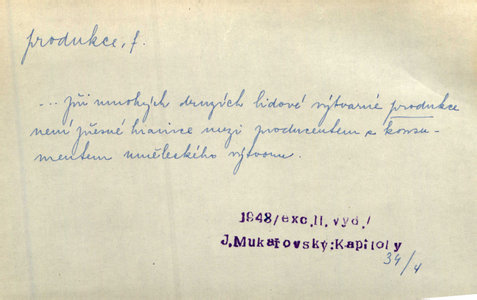 produkce, f.
... při mnohých druzích lidové výtvarné produkce
není přesné hranice mezi producentem a konsu-
mentem uměleckého výtvoru.
1948/exc.II.vyd./
J.Mukařovský:Kapitoly
34/4